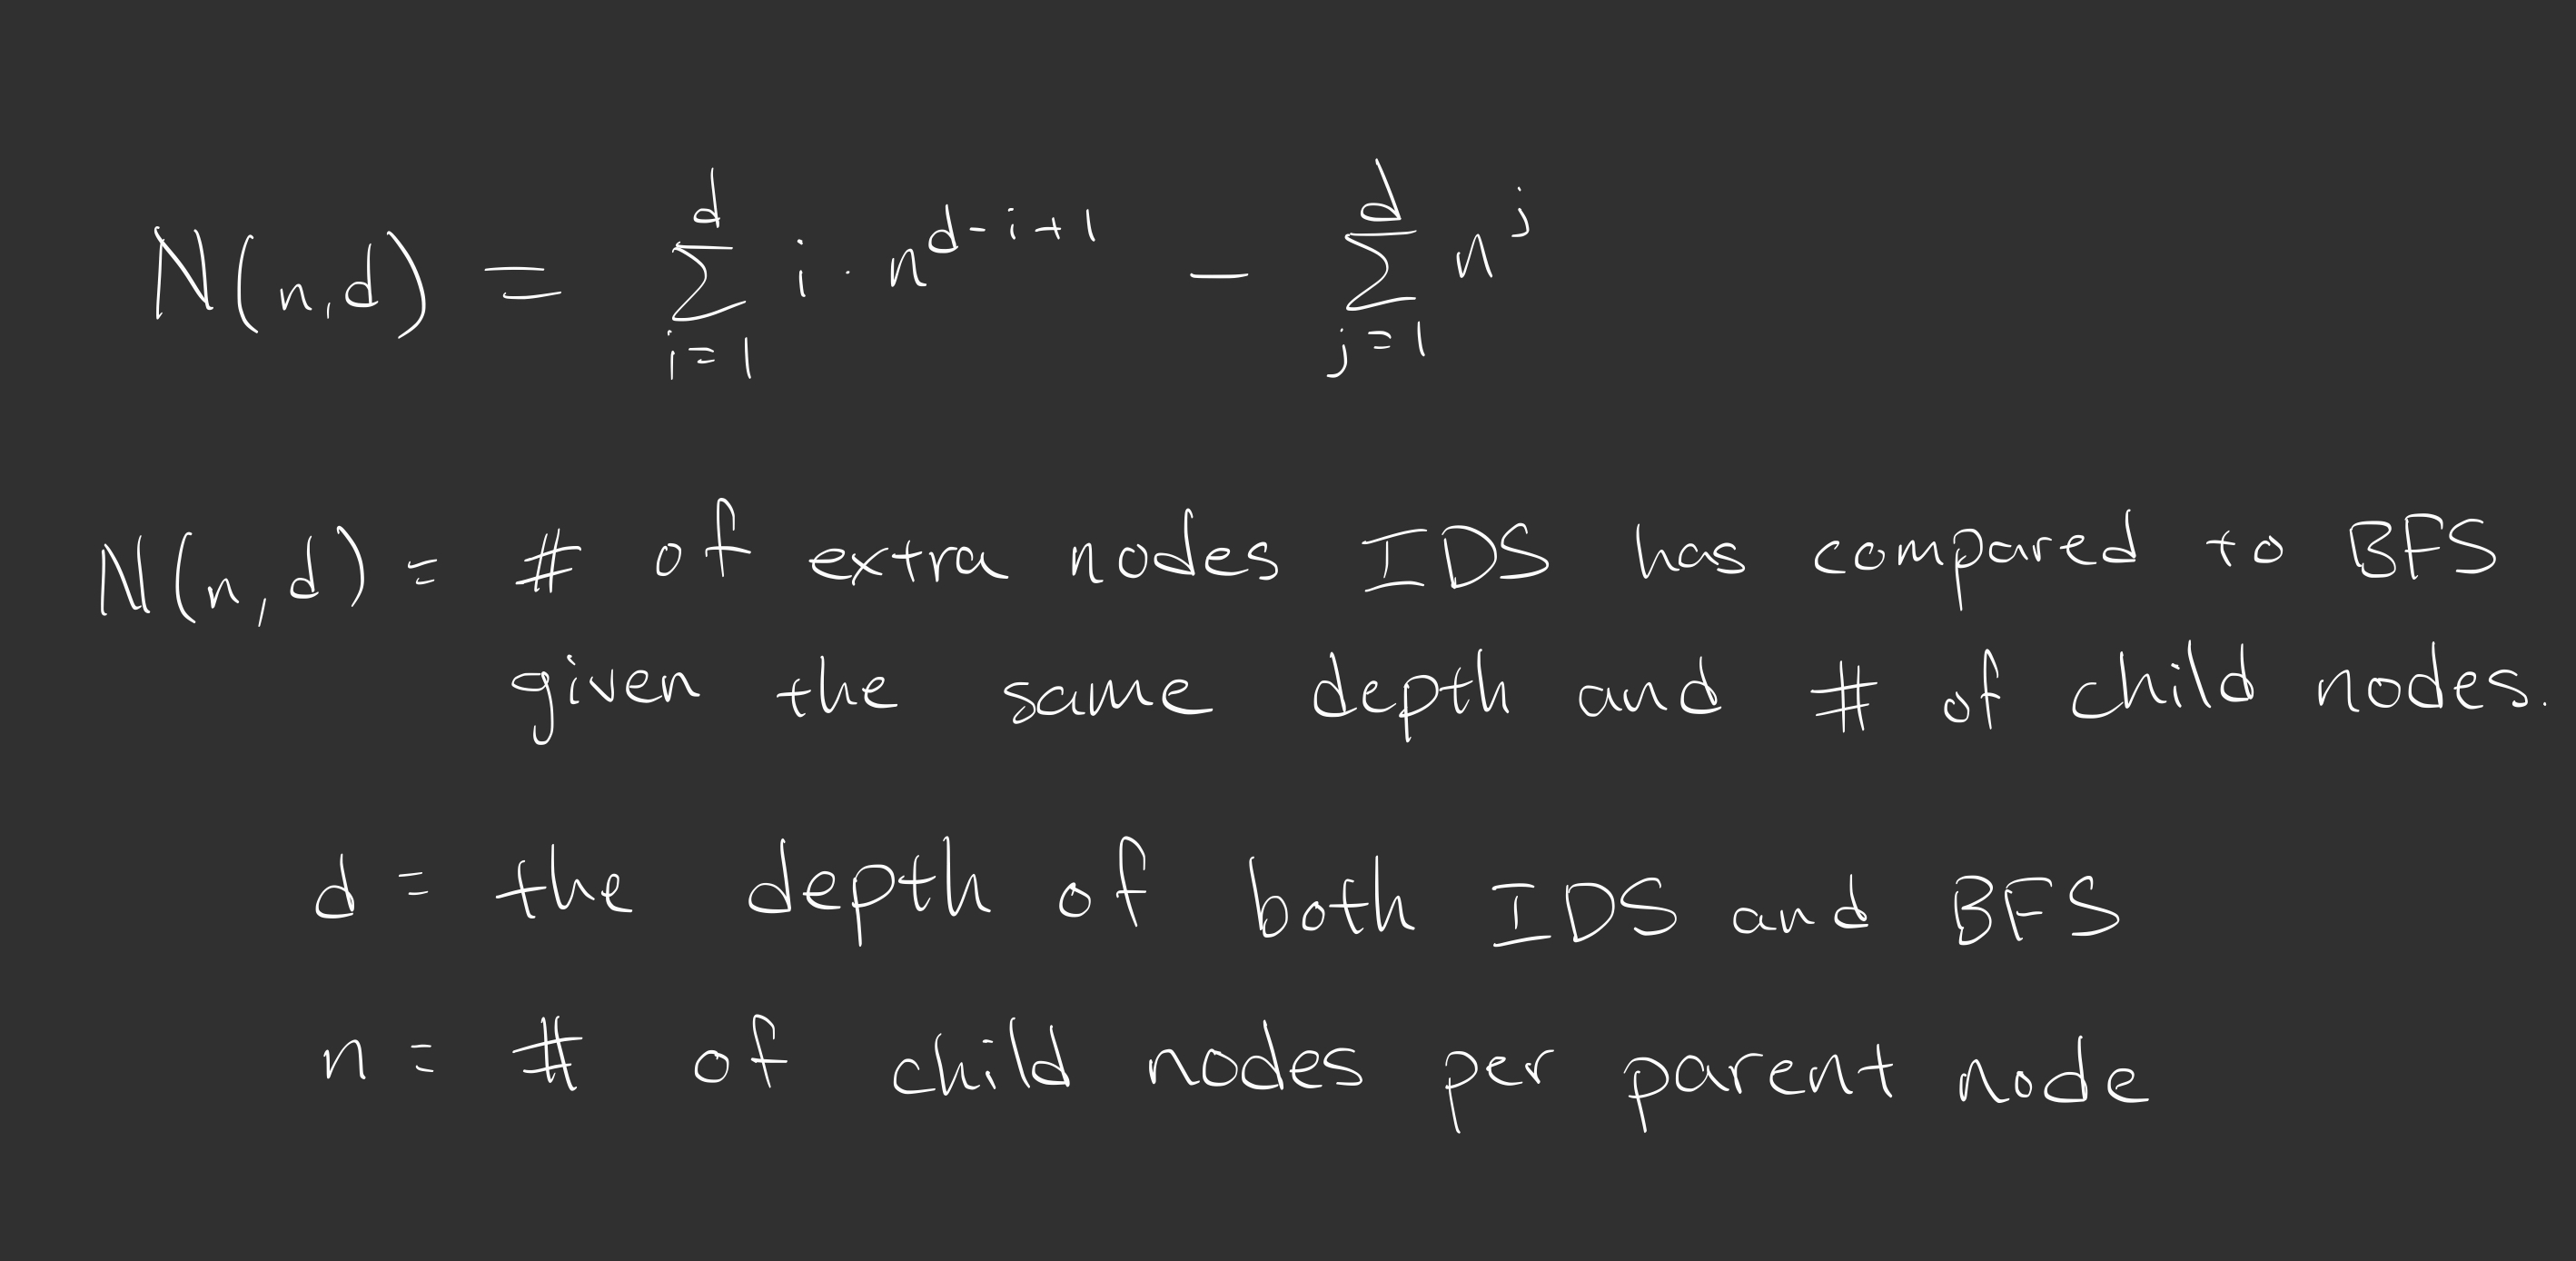 N(n,d) = \sum_{i=1}^{d} i · n^{d-i+1} - \sum_{j=1}^{d} n^{j}
N(n,d) = # of extra nodes IDS has compared to BFS
given the same depth and # of child nodes.
d = the depth of both IDS and BFS
n = # of child nodes per parent node